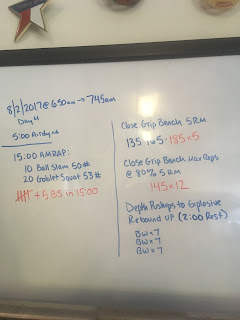 8/2/2017 @ 650am → 745am
Day 4
5:00 Airdyne
15:00 AMRAP:
10 Ball Slam 50#
20 Goblet Squat 53#
+ 5 BS in 15:00
Close Grip Bench 5RM
135, 165, 185x5
Close Grip Bench Max Reps
@ 80% 5RM
145x12
Depth Pushups to Explosive
Rebound UP (2:00 Rest)
BWx7
BWx7
BWx7